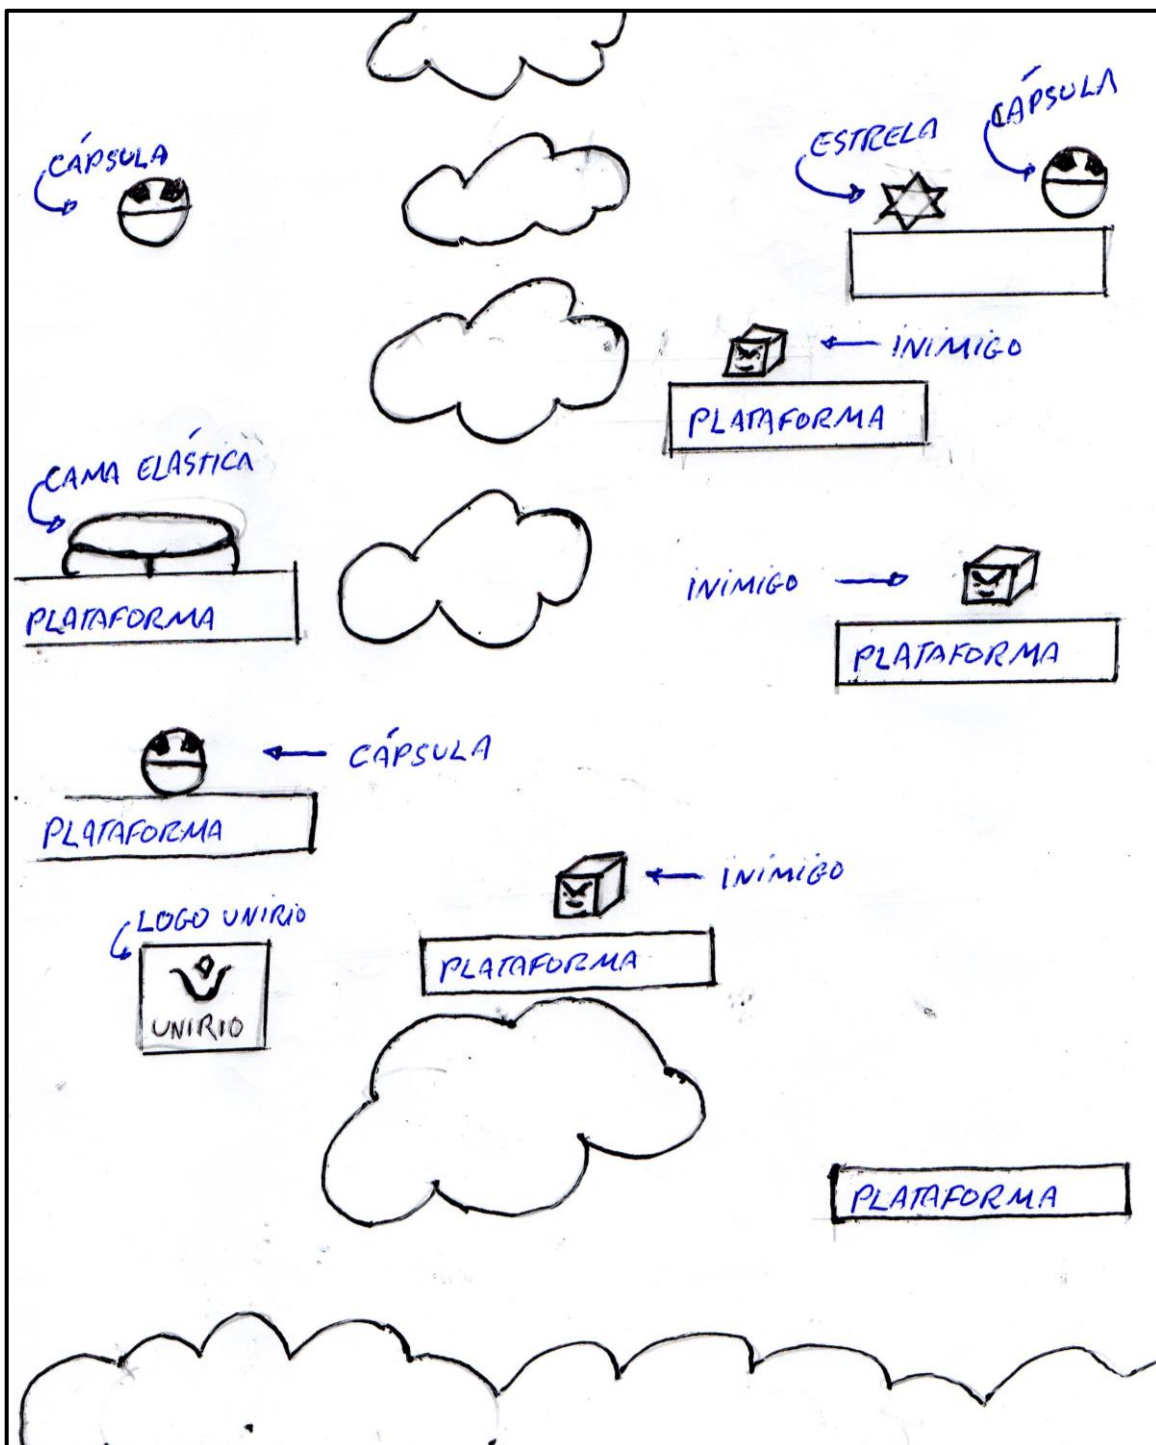 CÁPSULA
ESTRELA
CÁPSULA
INIMIGO
PLATAFORMA
CAMA ELÁSTICA
PLATAFORMA
INIMIGO
PLATAFORMA
CÁPSULA
PLATAFORMA
INIMIGO
PLATAFORMA
LOGO UNIRIO
UNIRIO
PLATAFORMA